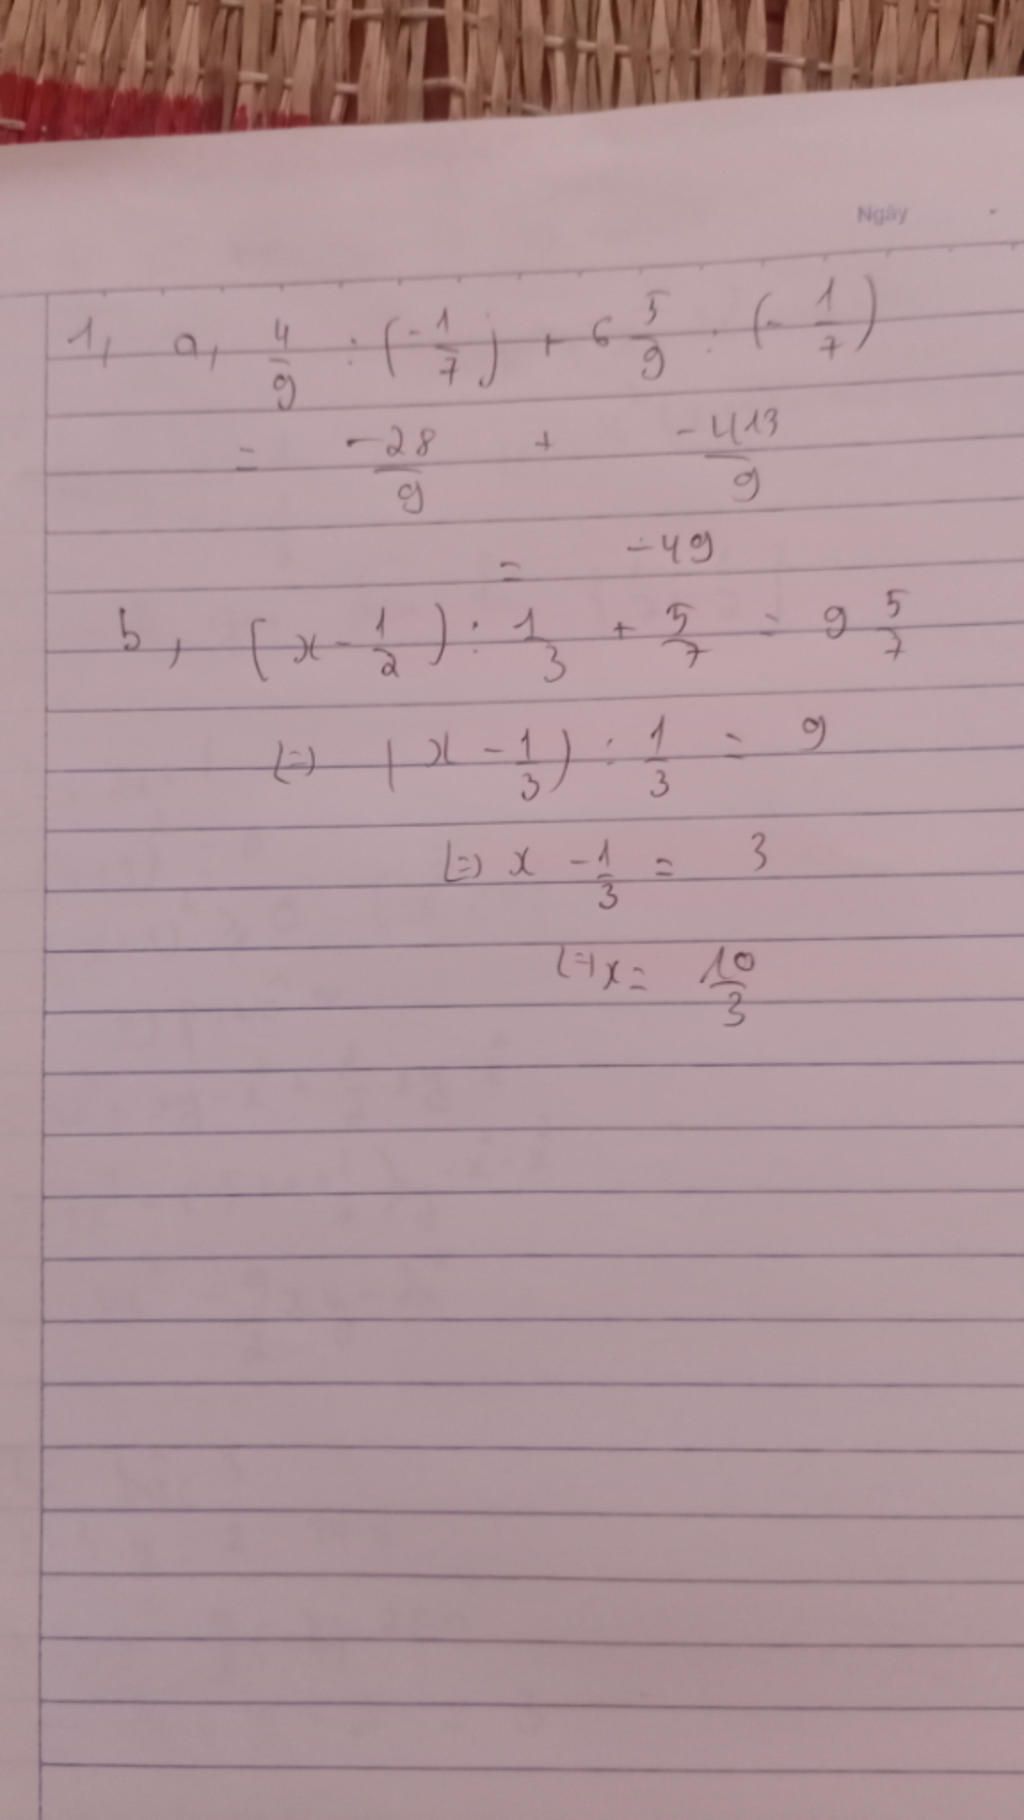 Ngày
1, a, 4/9 : (-1/7) + 6 5/9 : (-1/7)
= -28/9 + -413/9
= -49
b, (x - 1/2) : 1/3 + 5/7 = 9 5/7
(=) (x - 1/3) : 1/3 = 9
(=) x - 1/3 = 3
(=) x = 10/3